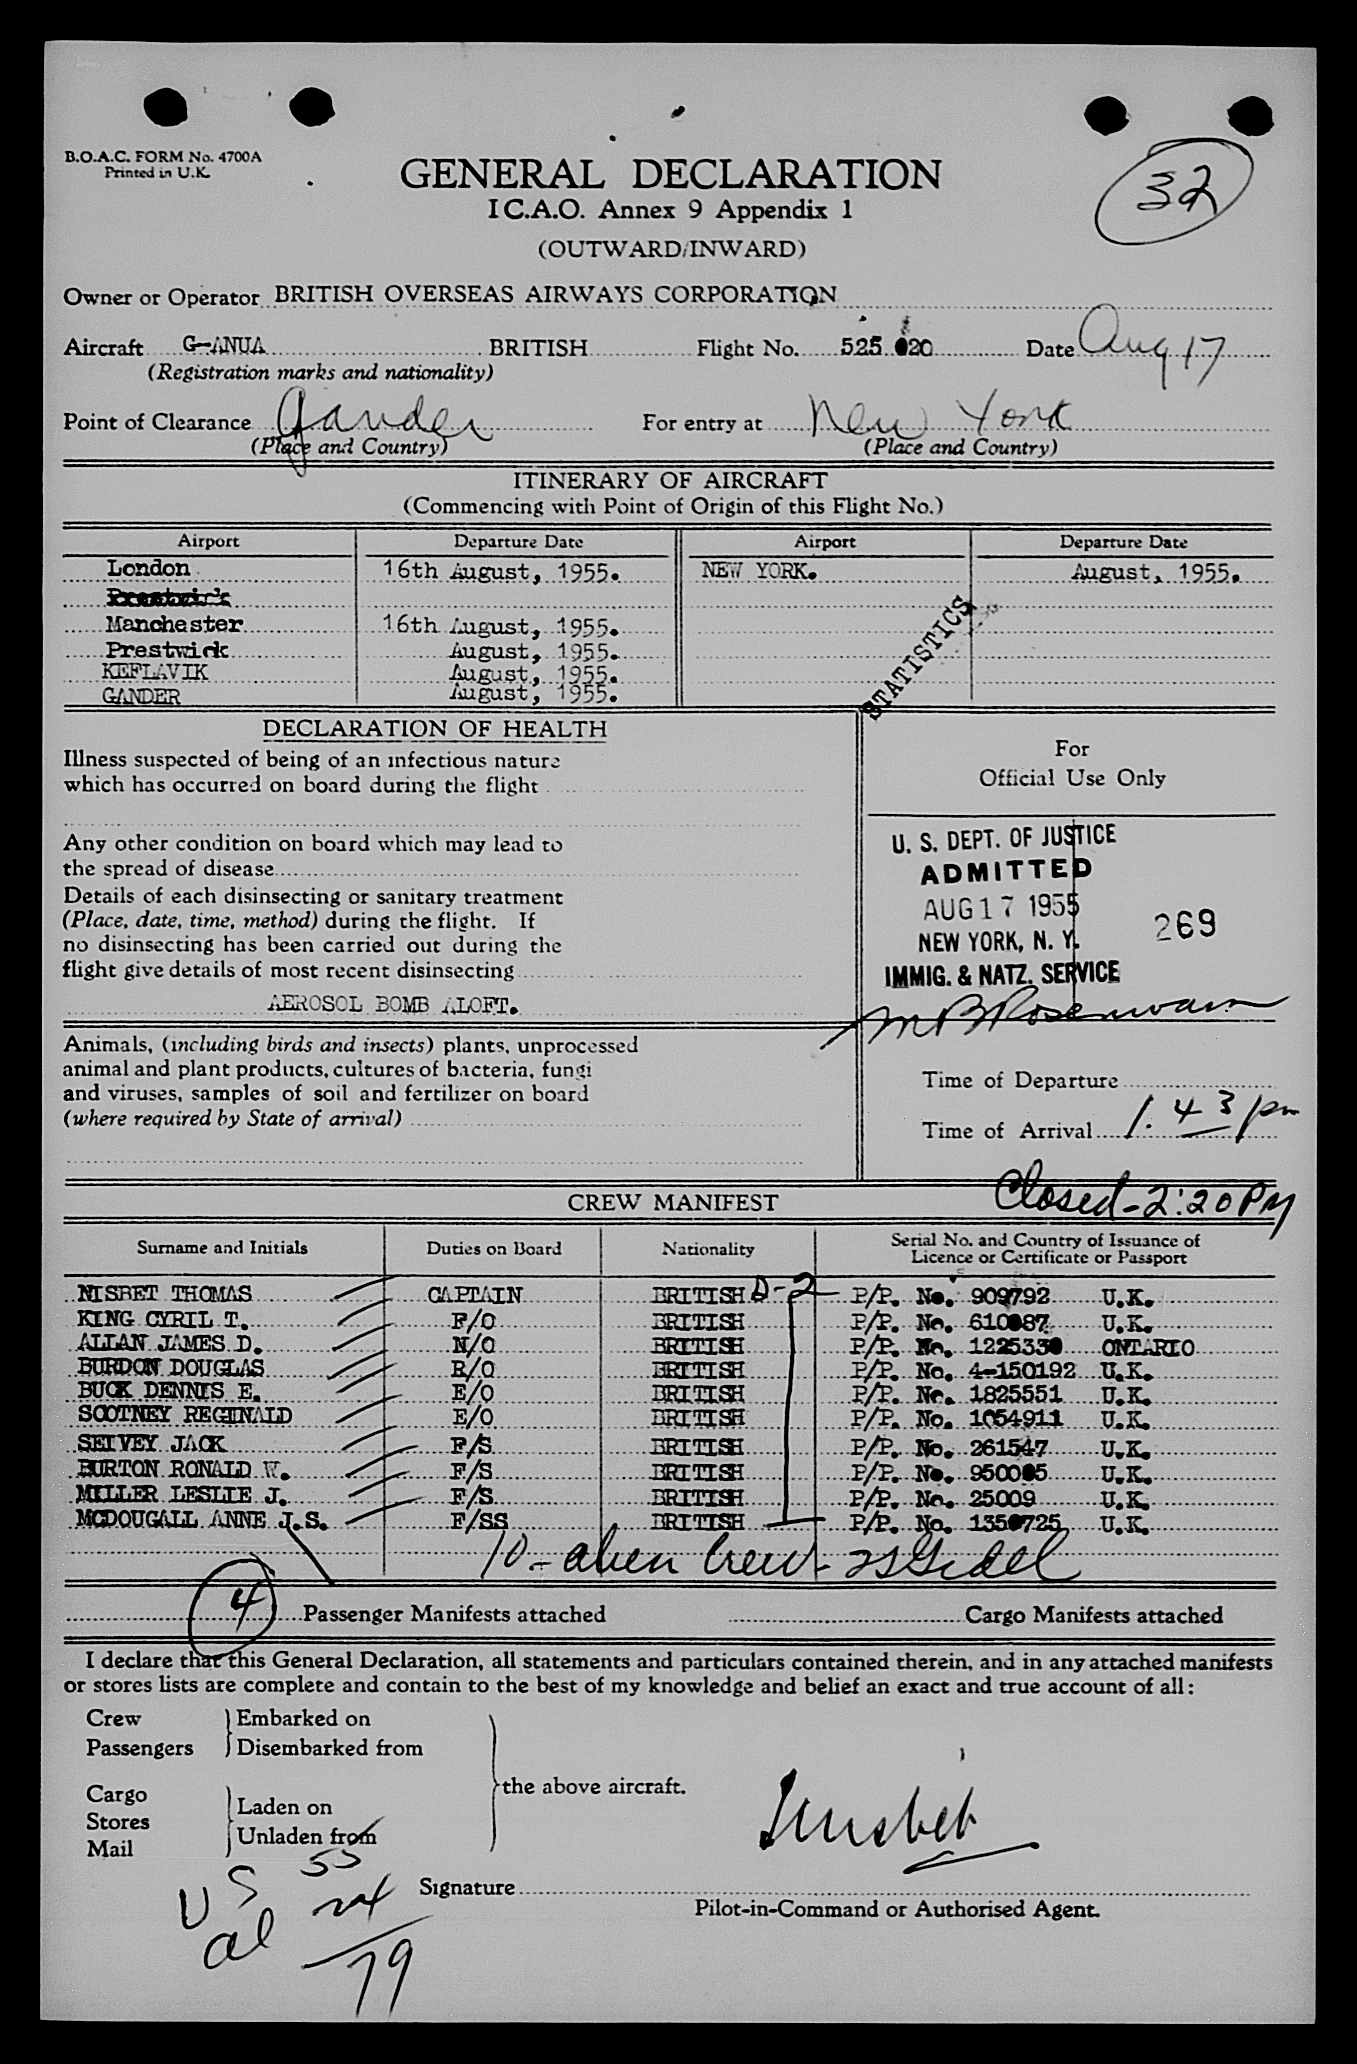 B.O.A.C. FORM No. 4700A
Printed in U.K.
32
GENERAL DECLARATION
I C.A.O. Annex 9 Appendix 1
(OUTWARD/INWARD)
Owner or Operator BRITISH OVERSEAS AIRWAYS CORPORATION
Aircraft G-ANUA BRITISH Flight No. 525 020 Date Aug 17
(Registration marks and nationality)
Point of Clearance Gander For entry at New York
(Place and Country) (Place and Country)
ITINERARY OF AIRCRAFT
(Commencing with Point of Origin of this Flight No.)
Airport Departure Date Airport Departure Date
London 16th August, 1955. NEW YORK. August, 1955.
Prestwick
Manchester 16th August, 1955.
Prestwick August, 1955.
KEFLAVIK August, 1955.
GANDER August, 1955.
STATISTICS
DECLARATION OF HEALTH
Illness suspected of being of an infectious nature
which has occurred on board during the flight
Any other condition on board which may lead to
the spread of disease
Details of each disinsecting or sanitary treatment
(Place, date, time, method) during the flight. If
no disinsecting has been carried out during the
flight give details of most recent disinsecting
AEROSOL BOMB ALOFT.
Animals, (including birds and insects) plants, unprocessed
animal and plant products, cultures of bacteria, fungi
and viruses, samples of soil and fertilizer on board
(where required by State of arrival)
For
Official Use Only
U. S. DEPT. OF JUSTICE
ADMITTED
AUG 17 1955
269
NEW YORK, N. Y.
IMMIG. & NATZ. SERVICE
Time of Departure
Time of Arrival 1.43 pm
Closed - 2:20 PM
CREW MANIFEST
Surname and Initials Duties on Board Nationality Serial No. and Country of Issuance of
Licence or Certificate or Passport
NISBET THOMAS CAPTAIN BRITISH D-2 P/P. No. 909792 U.K.
KING CYRIL T. F/O BRITISH P/P. No. 610087 U.K.
ALLAN JAMES D. N/O BRITISH P/P. No. 1225330 ONTARIO
BURDON DOUGLAS R/O BRITISH P/P. No. 4-150192 U.K.
BUCK DENNIS E. E/O BRITISH P/P. No. 1825551 U.K.
SCOTNEY REGINALD E/O BRITISH P/P. No. 1054911 U.K.
SEIVEY JACK F/S BRITISH P/P. No. 261547 U.K.
BURTON RONALD W. F/S BRITISH P/P. No. 950005 U.K.
MILLER LESLIE J. F/S BRITISH P/P. No. 25009 U.K.
MCDOUGALL ANNE J.S. F/SS BRITISH P/P. No. 1350725 U.K.
10 - alien Crew -
4 Passenger Manifests attached Cargo Manifests attached
I declare that this General Declaration, all statements and particulars contained therein, and in any attached manifests
or stores lists are complete and contain to the best of my knowledge and belief an exact and true account of all:
Crew Embarked on
Passengers Disembarked from
the above aircraft.
Cargo Laden on
Stores Unladen from
Mail
US 55
al 24
79
Signature
Pilot-in-Command or Authorised Agent.